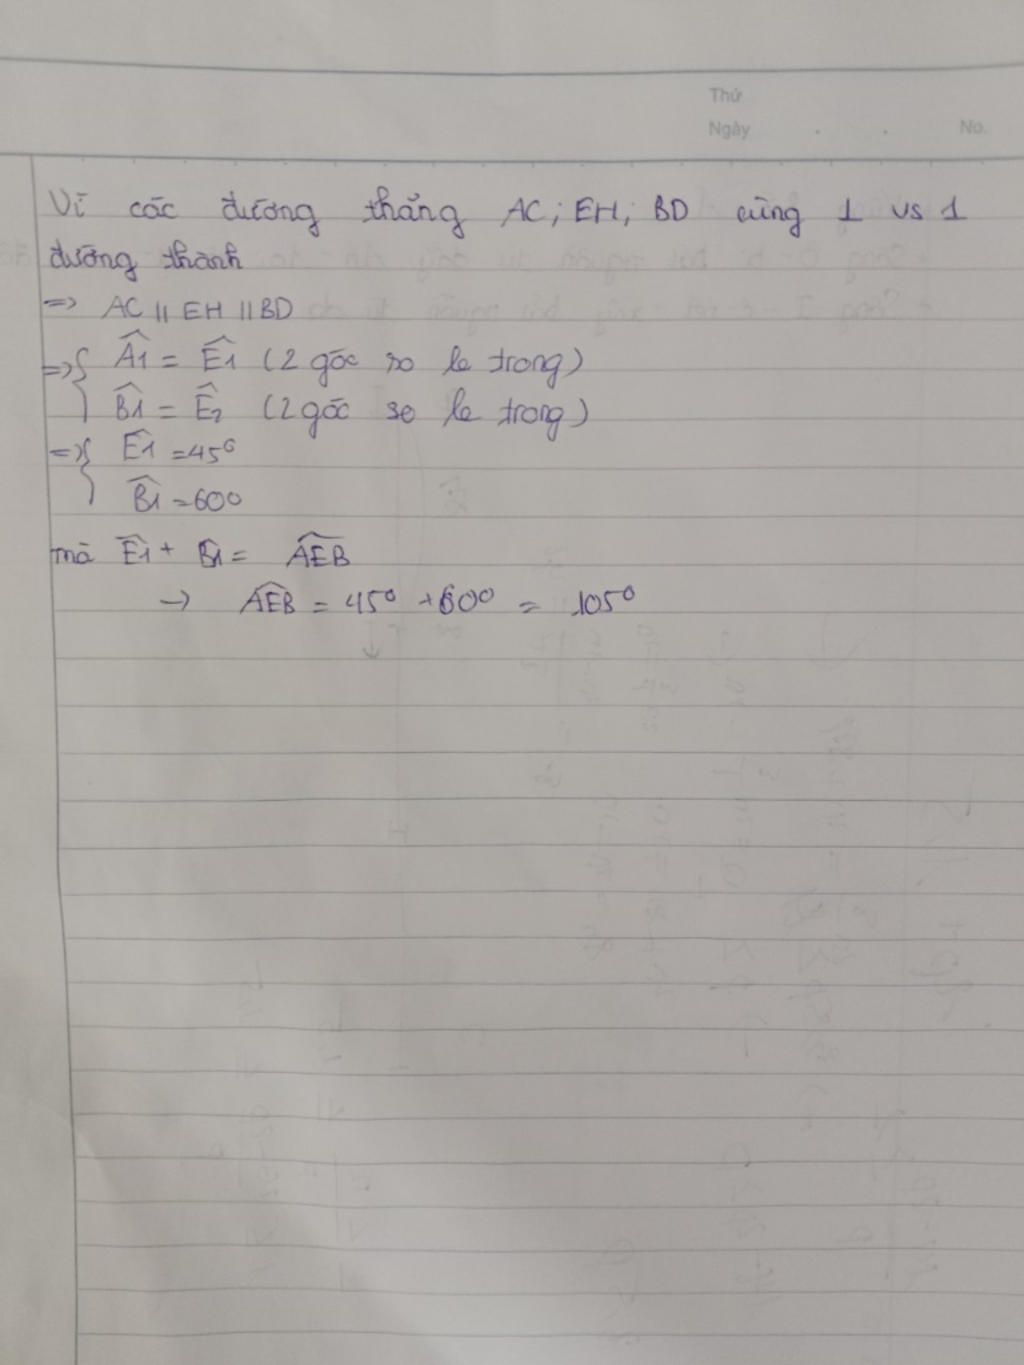 Thứ
Ngày . . No.
Vì các đường thẳng AC; EH; BD cùng ⊥ vs 1
đường thành
=> AC || EH || BD
=> { Â1 = Ê1 (2 góc so le trong)
B̂1 = Ê2 (2 góc so le trong)
=> { Ê1 = 45°
B̂1 = 60°
mà Ê1 + B̂1 = AEB
-> AEB = 45° + 60° = 105°